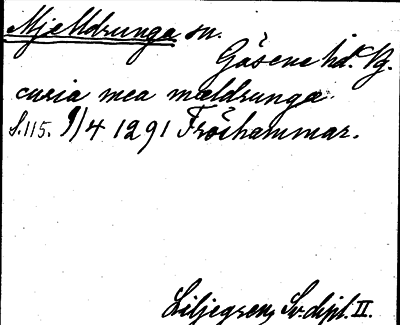 Mjelldrunga sn.
Gäsene hd. Vg.
curia mea mældrunga.
S. 115. 9/4 1291 Fröshammar.
Liljegren, Sv. dipl. II.